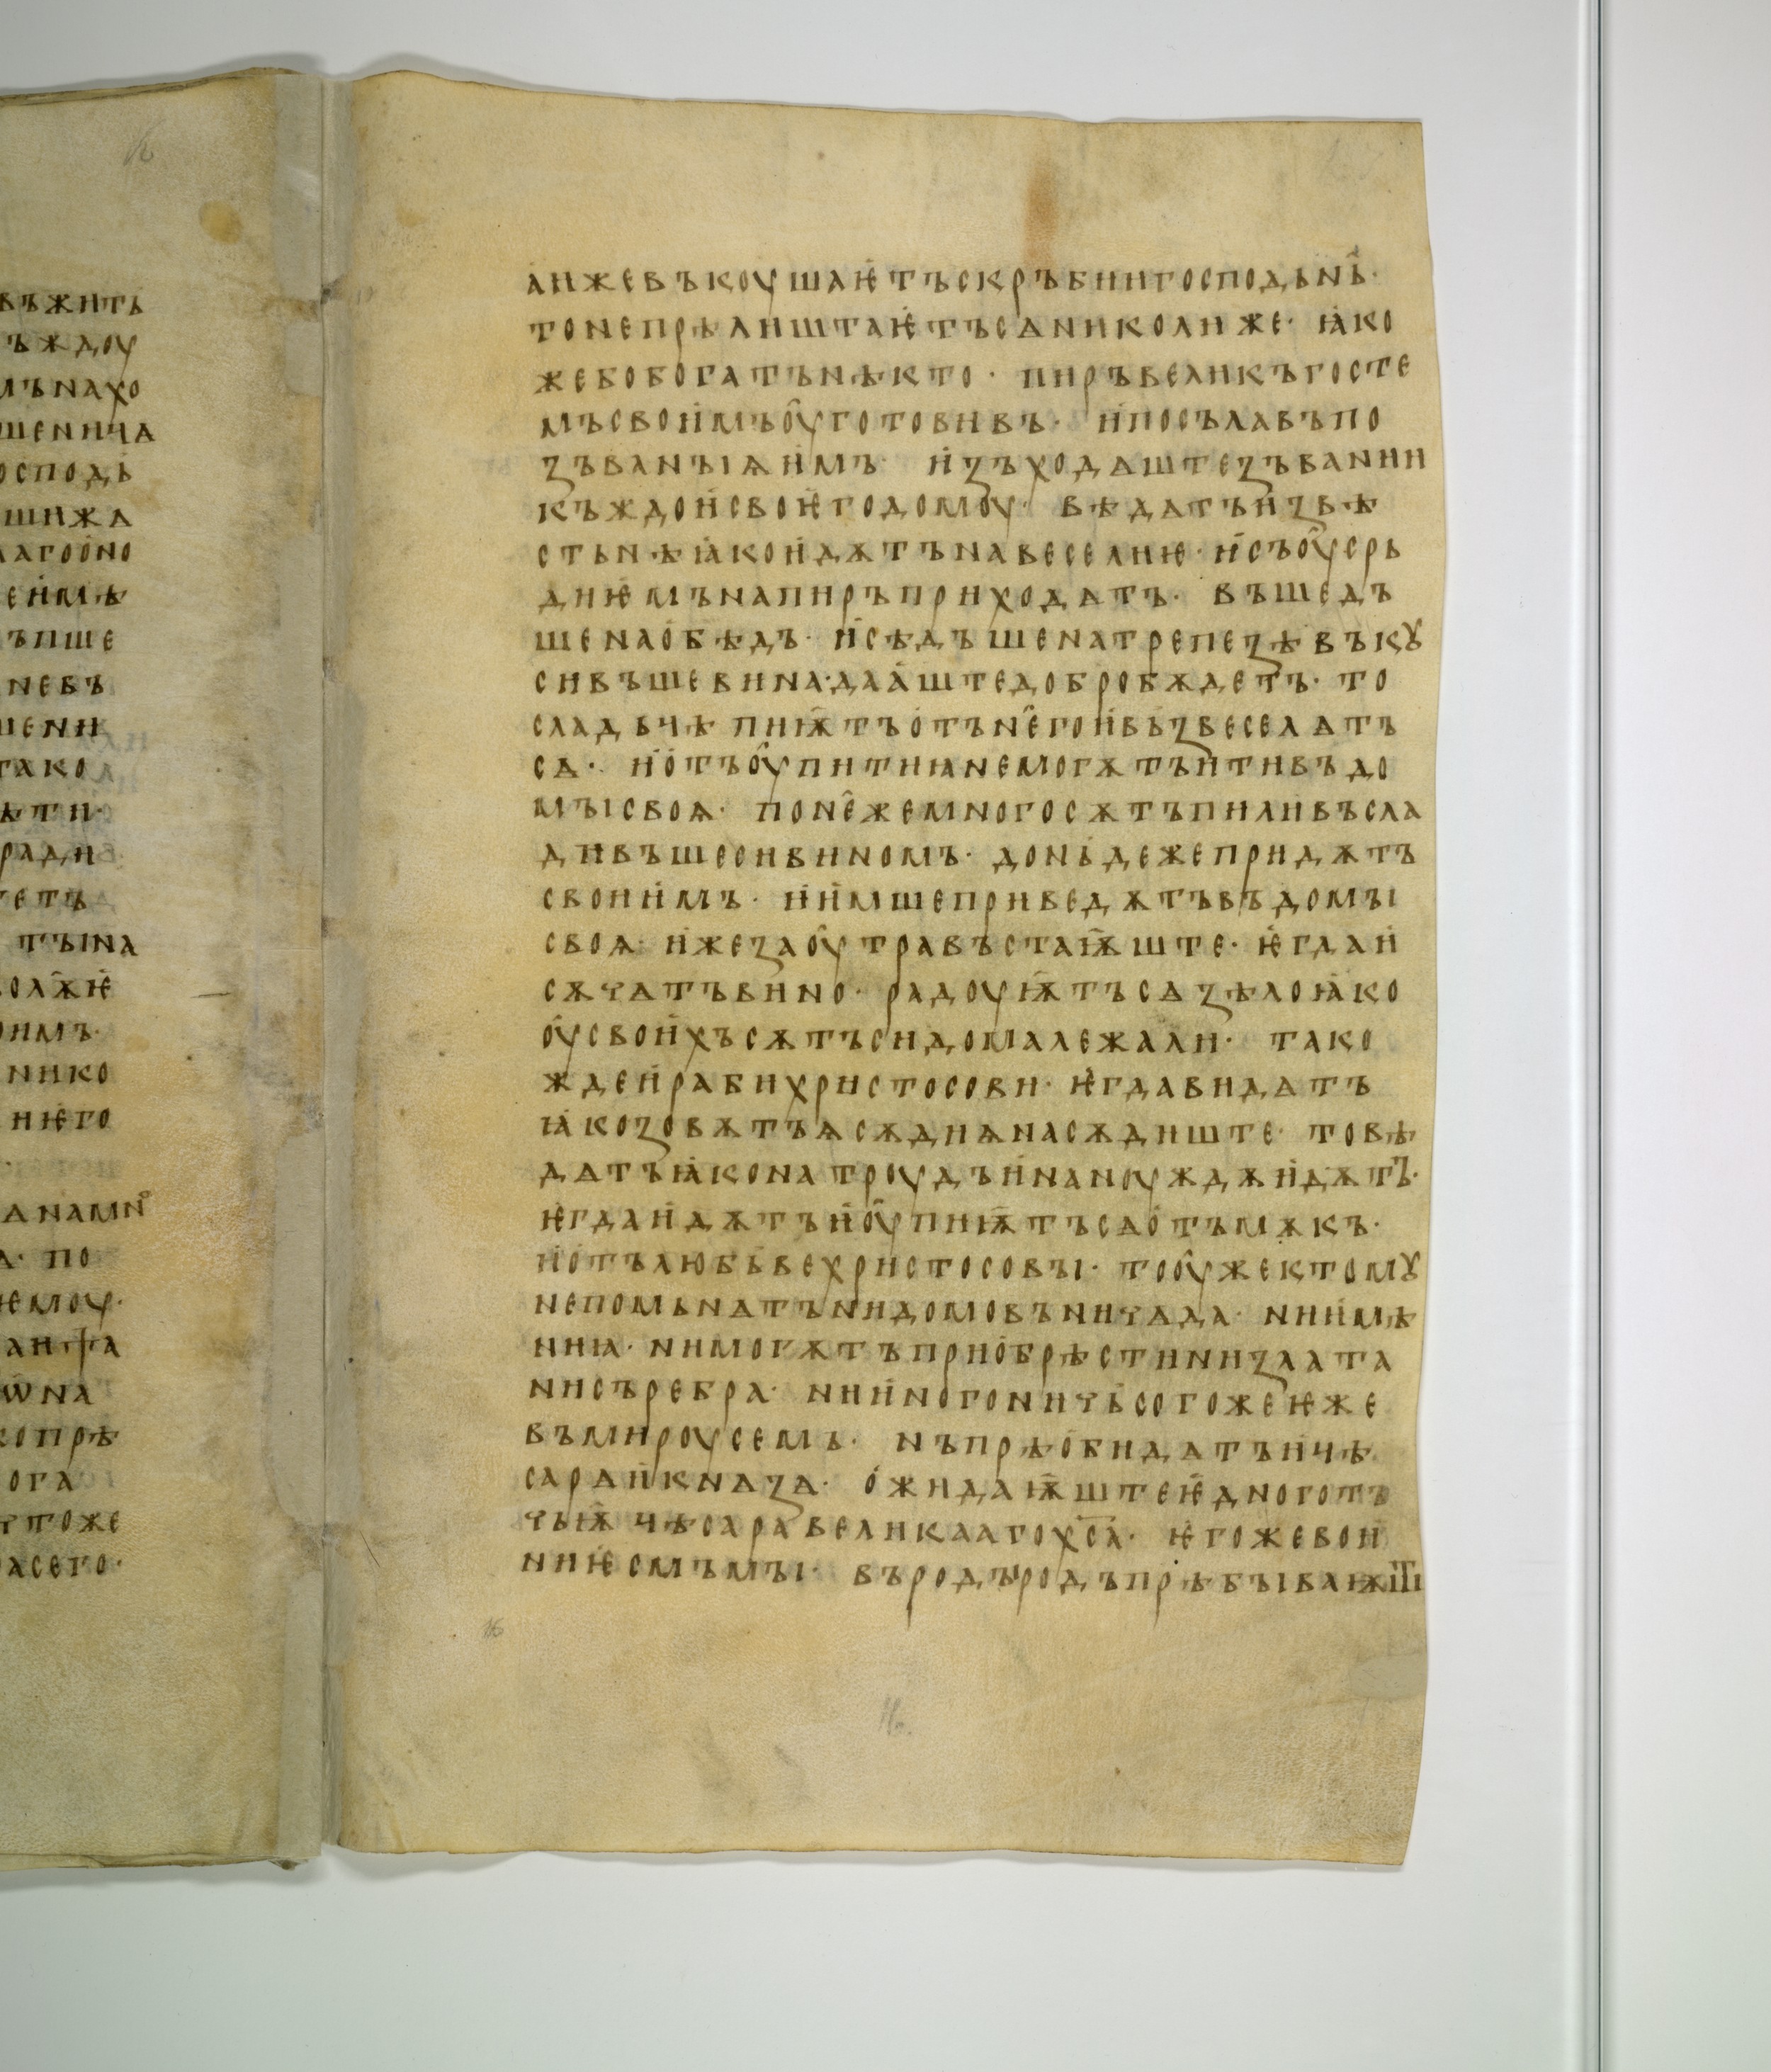 въжить
ъждоу
мънахо
шеница
осподь
шижа
лагооно
еимѣ
ъпше
невъ
шени
тако
ѣти·
ради
тетъ
тъіна
волѭѥ
оимъ·
нико
нѥго
ѧнамн
а· по
ѥмоу·
ѡна
копрѣ
ога
чтоже
асего·
а иже въкоушаѥтъ скръбии господьнь·
то не прѣлиштаѥтъ сѧ николиже· ꙗко
же бо богатъ нѣкто· пиръ великъ госте
мъ своимъ оуготовивъ· и посълавъ по
зъванъіѩ имъ· изъходѧште зъвании
къждо и своѥго домоу· вѣдѧтъ извѣ
стьнѣ ꙗко идѫтъ на веселиѥ· и съ оусрь
диѥмъ на пиръ приходѧтъ· въшедъ
ше на обѣдъ· и сѣдъше на трепезѣ въкꙋ
сивъше вина· даѧште добро бѫдетъ· то
сладьчѣ пиѭтъ отъ него и възвеселѧтъ
сѧ· и отъ оупитиꙗ не могѫтъ ити въ до
мъі своѩ· понеже много сѫтъ пили въсла
дивъше си виномъ· доньдеже придѫтъ
свои имъ· и имше приведѫтъ въ домъі
своѩ· иже заоутра въстаѭште· ѥгда и
сѫчатъ вино· радоуѭтъ сѧ зѣло ꙗко
оу своихъ сѫтъ си дома лежали· тако
жде и раби христосови· ѥгда видѧтъ
ꙗко зовѫтъ ѩ сѫдиѩ на сѫдиште· то вѣ
дѧтъ ꙗко на троудъ и на ноуждѫ идѫтъ·
ѥгда идѫтъ и оупиѭтъ сѧ отъ мѫкъ·
и отъ любъве христосовъі· то оуже к томꙋ
не помьнѧтъ ни домовъ ни чѧда· ни имѣ
ниꙗ· ни могѫтъ приобрѣсти ни злата
ни съребра· ни иного ничьсогоже ѥже
въ мироу семь· нъ прѣобидѧтъ и цѣ
сарѧ и кнѧзѧ· ожидаѭште ѥдиного тъ
чьѭ цѣсарѧ великааго хса· ѥгоже вои
ни ѥсмъ мъі· въ родъ родъ прѣбъіваѭшти